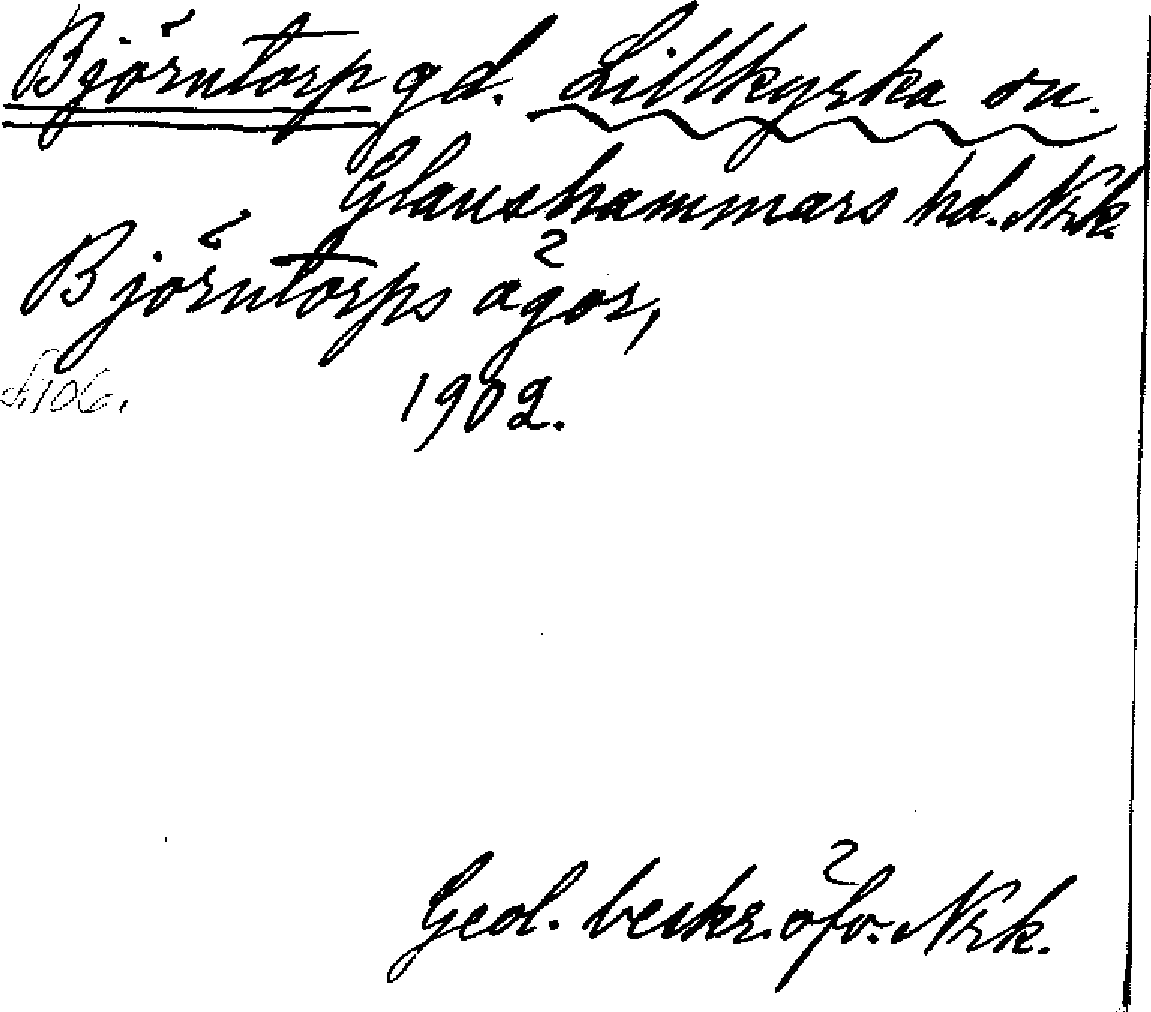 Björntorp gd. Lillkyrka sn.
Glanshammars hd. Nrk.
Björntorps ägor,
1902.
s. 106.
Geol. beskr. öfv. Nrk.